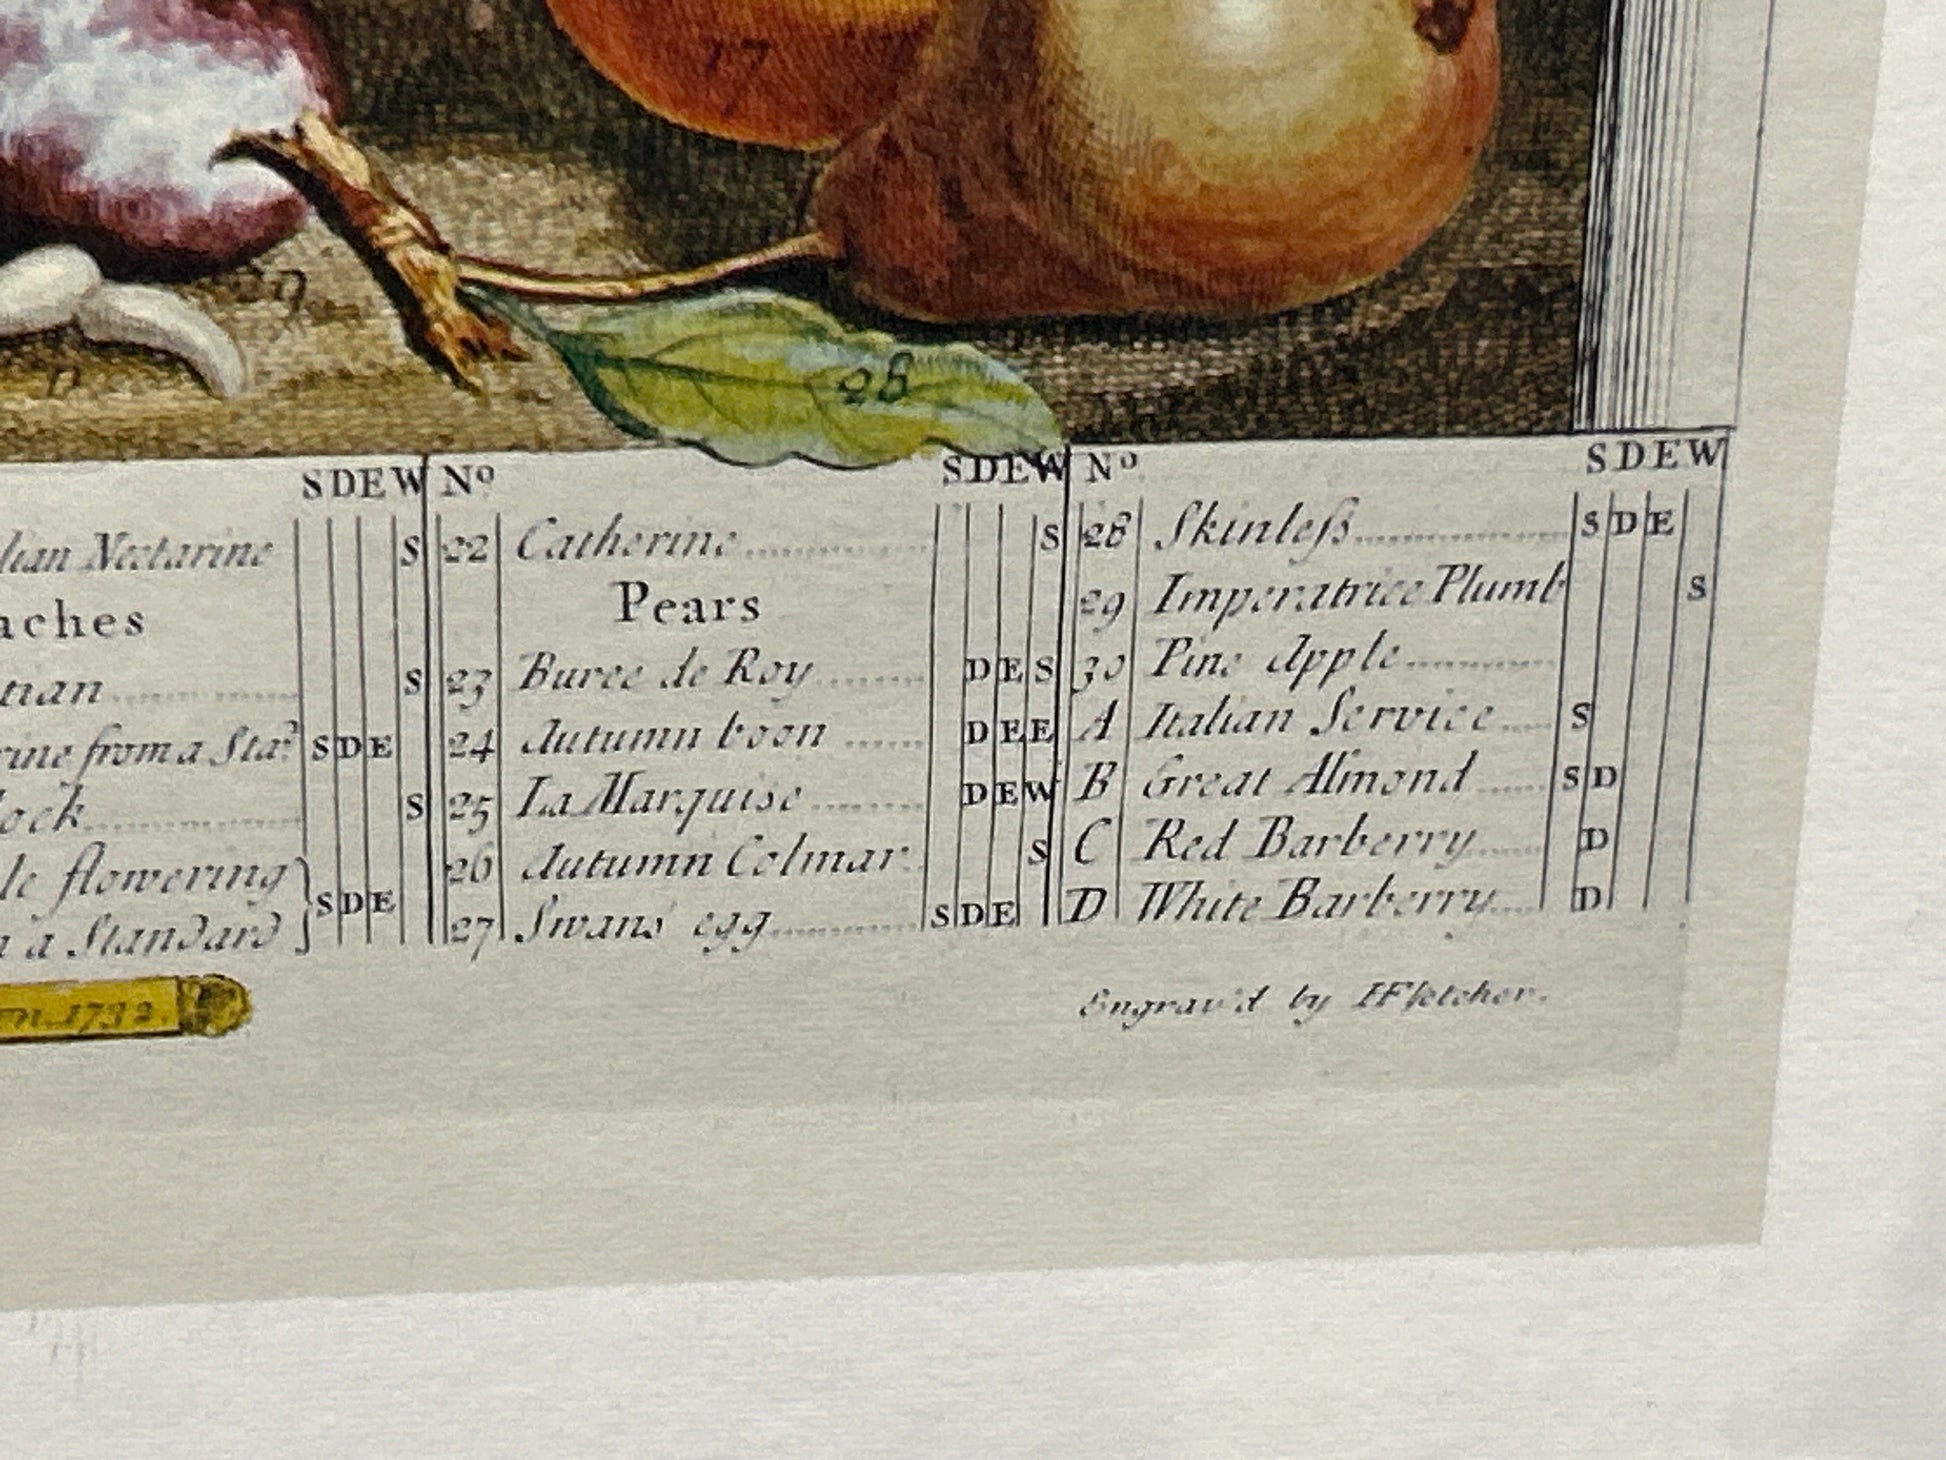 17
29
28
S D E W
lian Nectarine S
aches
tian S
rine from a Sta.ᵈ S D E
lock S
le flowering
a Standard } S D E
Nº S D E W
22 Catherine S
Pears
23 Buree de Roy D E S
24 Autumn boon D E E
25 La Marquise D E W
26 Autumn Colmar S
27 Swans egg S D E
Nº S D E W
28 Skinleſs S D E
29 Imperatrice Plumb S
30 Pine Apple
A Italian Service S
B Great Almond S D
C Red Barberry D
D White Barberry D
1732.
Engrav'd by HFletcher.